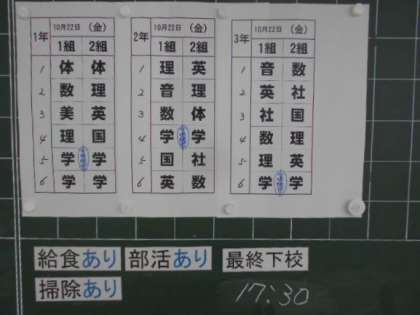 1年 10月22日 (金)
1組 2組
1 体 体
2 数 理
3 美 英
4 理 国
5 学 学
6 学 学
2年 10月22日 (金)
1組 2組
1 理 英
2 音 理
3 数 体
4 学 学
5 国 社
6 英 数
3年 10月22日 (金)
1組 2組
1 音 数
2 英 社
3 社 国
4 数 理
5 理 英
6 学 学
給食あり 部活あり 最終下校
掃除あり 17:30